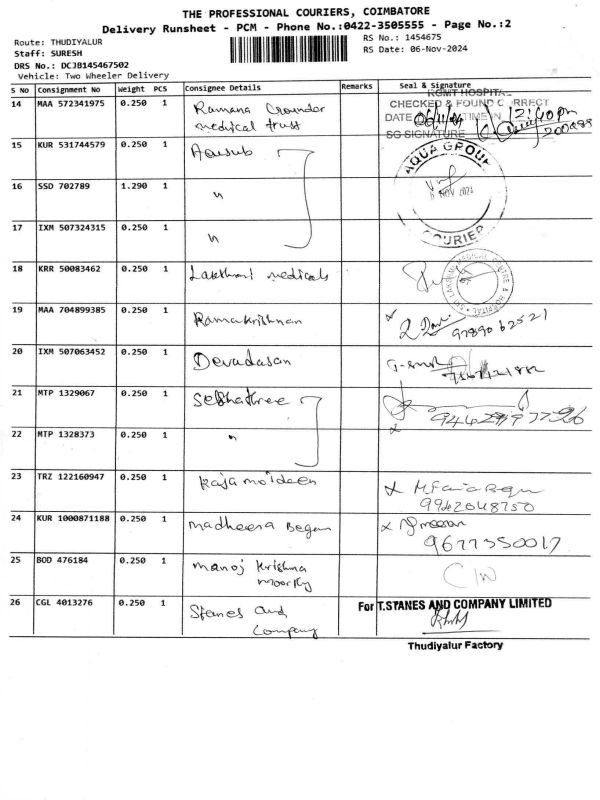 THE PROFESSIONAL COURIERS, COIMBATORE
Delivery Runsheet - PCM - Phone No.:0422-3505555 - Page No.:2
Route: THUDIYALUR
RS No.: 1454675
Staff: SURESH
RS Date: 06-Nov-2024
DRS No.: DCJB145467502
Vehicle: Two Wheeler Delivery
S No Consignment No Weight PCS Consignee Details Remarks Seal & Signature
14 MAA 572341975 0.250 1 Ramana
medical trust
KGMT HOSPITAL
CHECKED & FOUND CORRECT
DATE 06/11/24 TIME IN 12:40pm
SG SIGNATURE
15 KUR 531744579 0.250 1
AQUA GROUP
16 SSD 702789 1.290 1 "
NOV 2024
17 IXM 507324315 0.250 1 "
COURIER
18 KRR 50083462 0.250 1 Lakshmi medicals
19 MAA 704899385 0.250 1 Ramakrishnan
9789062521
20 IXM 507063452 0.250 1 Devadasan
21 MTP 1329067 0.250 1
22 MTP 1328373 0.250 1 "
23 TRZ 122160947 0.250 1 Kaja moideen
9942048750
24 KUR 1000871188 0.250 1 madheena Begam
9677350017
25 BOD 476184 0.250 1 manoj Krishna
moorthy
C/W
26 CGL 4013276 0.250 1 Stanes and
Company
For T.STANES AND COMPANY LIMITED
Thudiyalur Factory